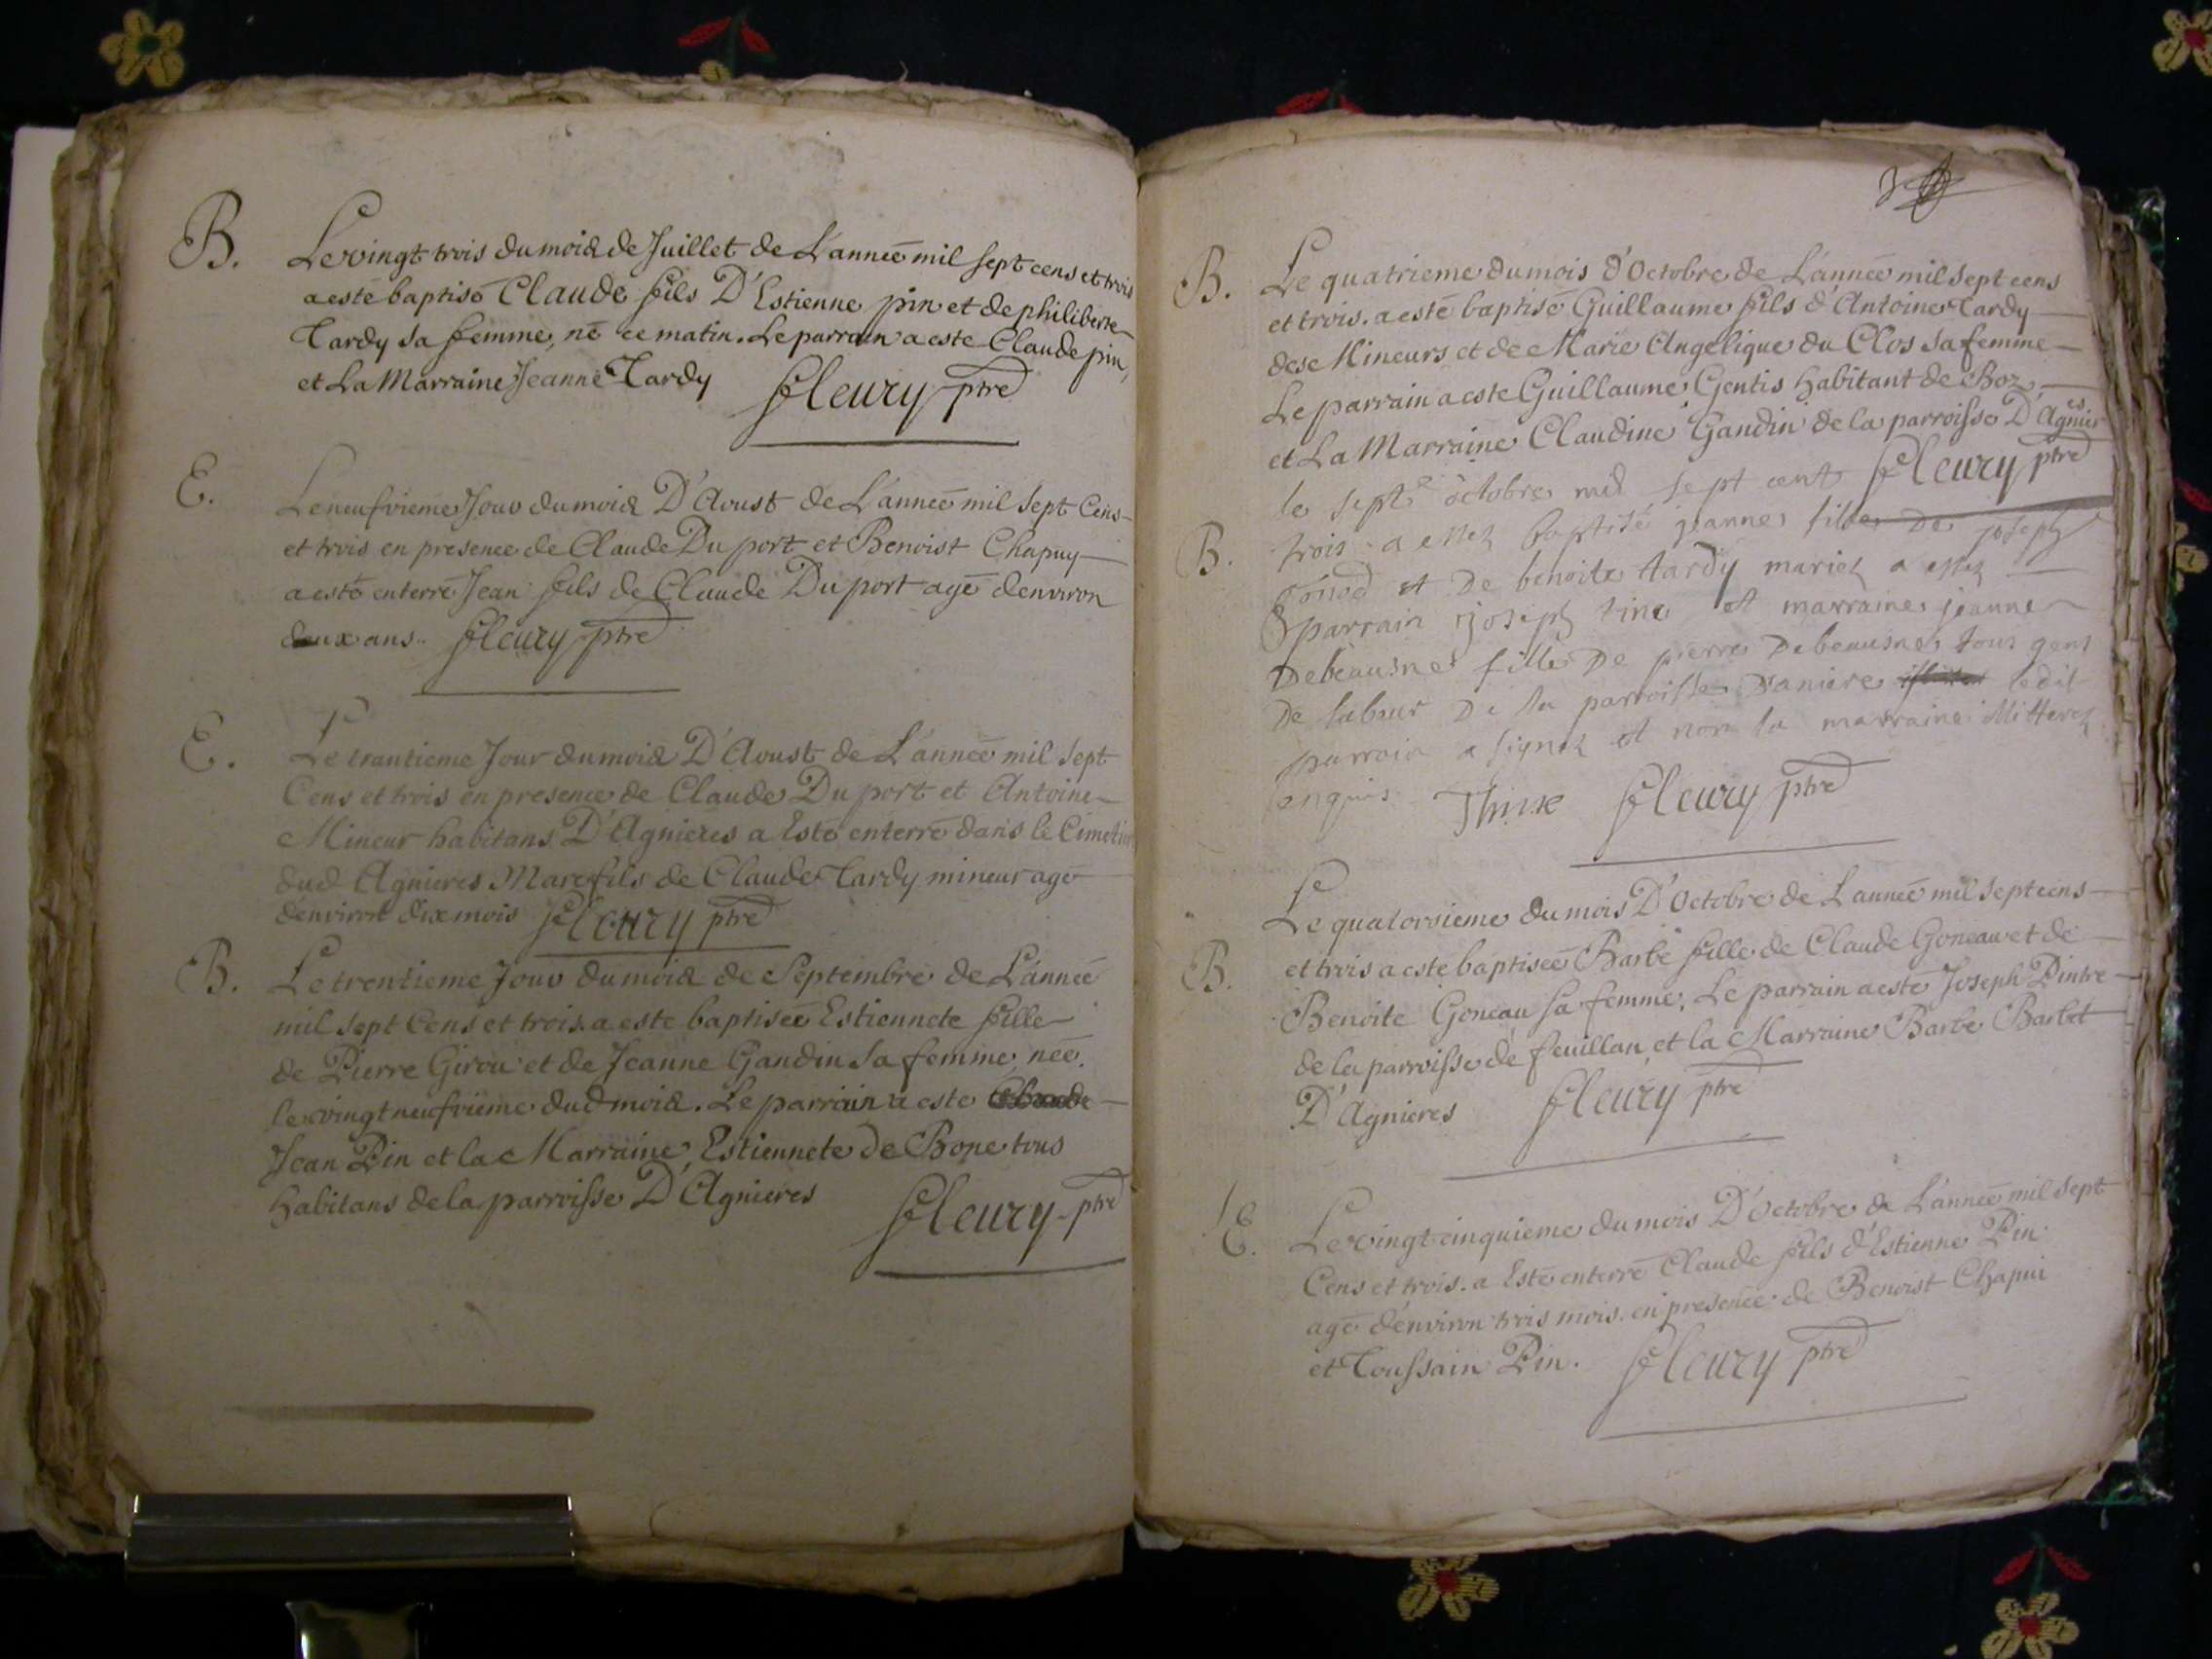 B.
Le vingt trois du mois de Juillet de L'année mil sept cens et trois
a esté baptisé Claude fils D'Estienne pin et de philiberte
Tardy sa femme, né ce matin. Le parrain a esté Claude pin,
et La Marraine Jeanne Tardy
fleury ptre
E.
Le neufvieme Jour du mois D'Aoust de L'année mil sept Cens
et trois en presence de Claude Du port et Benoist Chapuy
a esté enterré Jean fils de Claude Du port agé d'environ
deux ans. fleury ptre
E.
Le trantieme Jour du mois D'Aoust de L'année mil sept
Cens et trois en presence de Claude Du port et Antoine
Mineur habitans D'Agnieres a Esté enterré dans le Cimetiere
dud Agnieres Marc fils de Claude Tardy mineur agé
d'environ dix mois fleury ptre
B.
Le trentieme Jour du mois de Septembre de L'année
mil sept Cens et trois a esté baptisée Estiennete fille
de Pierre Girou et de Jeanne Gandin sa femme, née
le vingt neufvieme dud mois. Le parrain a esté
Jean Pin et la Marraine Estiennete de Bone tous
habitans de la parroisse D'Agnieres
fleury ptre
B.
Le quatrieme du mois d'Octobre de L'année mil sept cens
et trois. a esté baptisé Guillaume fils d'Antoine Tardy
dese Mineurs et de Marie Angelique du Clos sa femme
Le parrain a esté Guillaume Gentis habitant de Boz
et La Marraine Claudine Gandin de la parroisse D'Agnieres
fleury ptre
B.
le sept.e octobre mil sept cent
trois a estez baptisé jeanne fille de joseph
et de benoite tardy mariez a estez
parrain joseph tinc et marraine jeanne
Debeausne fille De pierre Debeausne tous gens
De labeur De la parroisse D'aniere ledit
parrain a signez et non la marraine
enquis. Think fleury ptre
B.
Le quatorsieme du mois D'Octobre de L'année mil sept cens
et trois a esté baptisée Barbe fille de Claude Goneau et de
Benoite Goneau sa femme, Le parrain a esté Joseph Pintre
de la parroisse de feuillan, et la Marraine Barbe Barbet
D'Agnieres fleury ptre
E.
Le vingt cinquieme du mois D'Octobre de L'année mil sept
Cens et trois. a Esté enterré Claude fils d'Estienne Pin
agé d'environ trois mois. en presence de Benoist Chapui
et Toussain Pin. fleury ptre